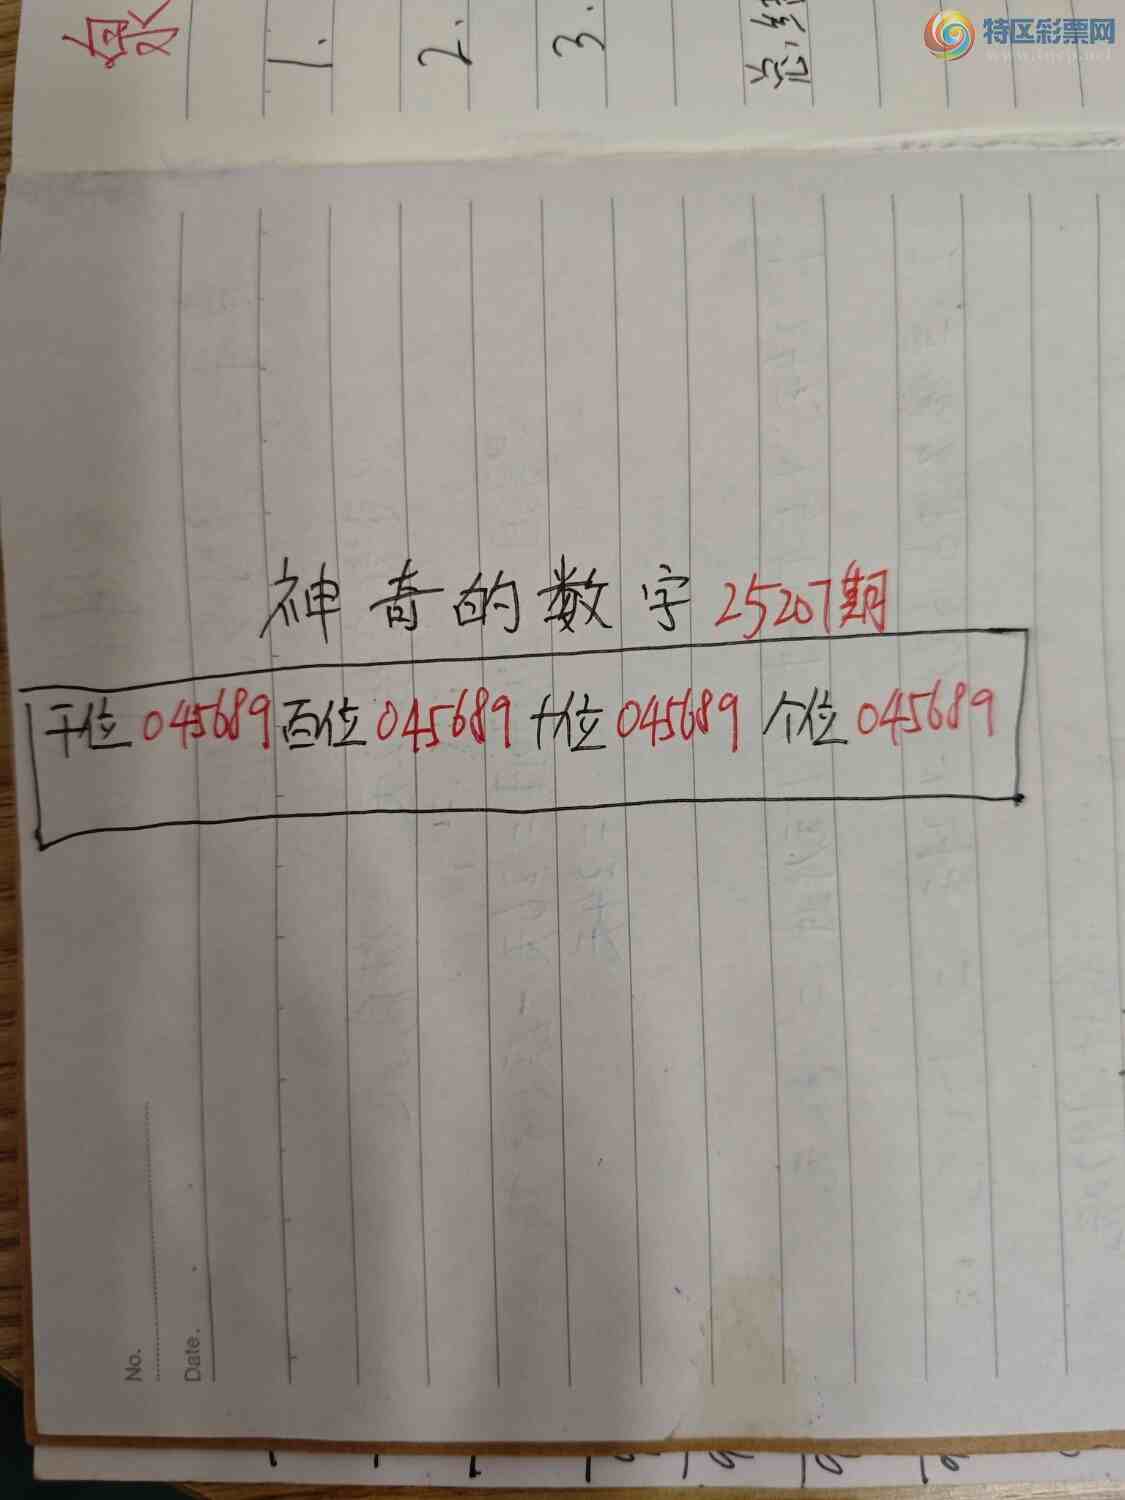 特区彩票网
www.tqcp.net
1.
2.
3.
神奇的数字25207期
千位045689百位045689十位045689个位045689
No.
Date.